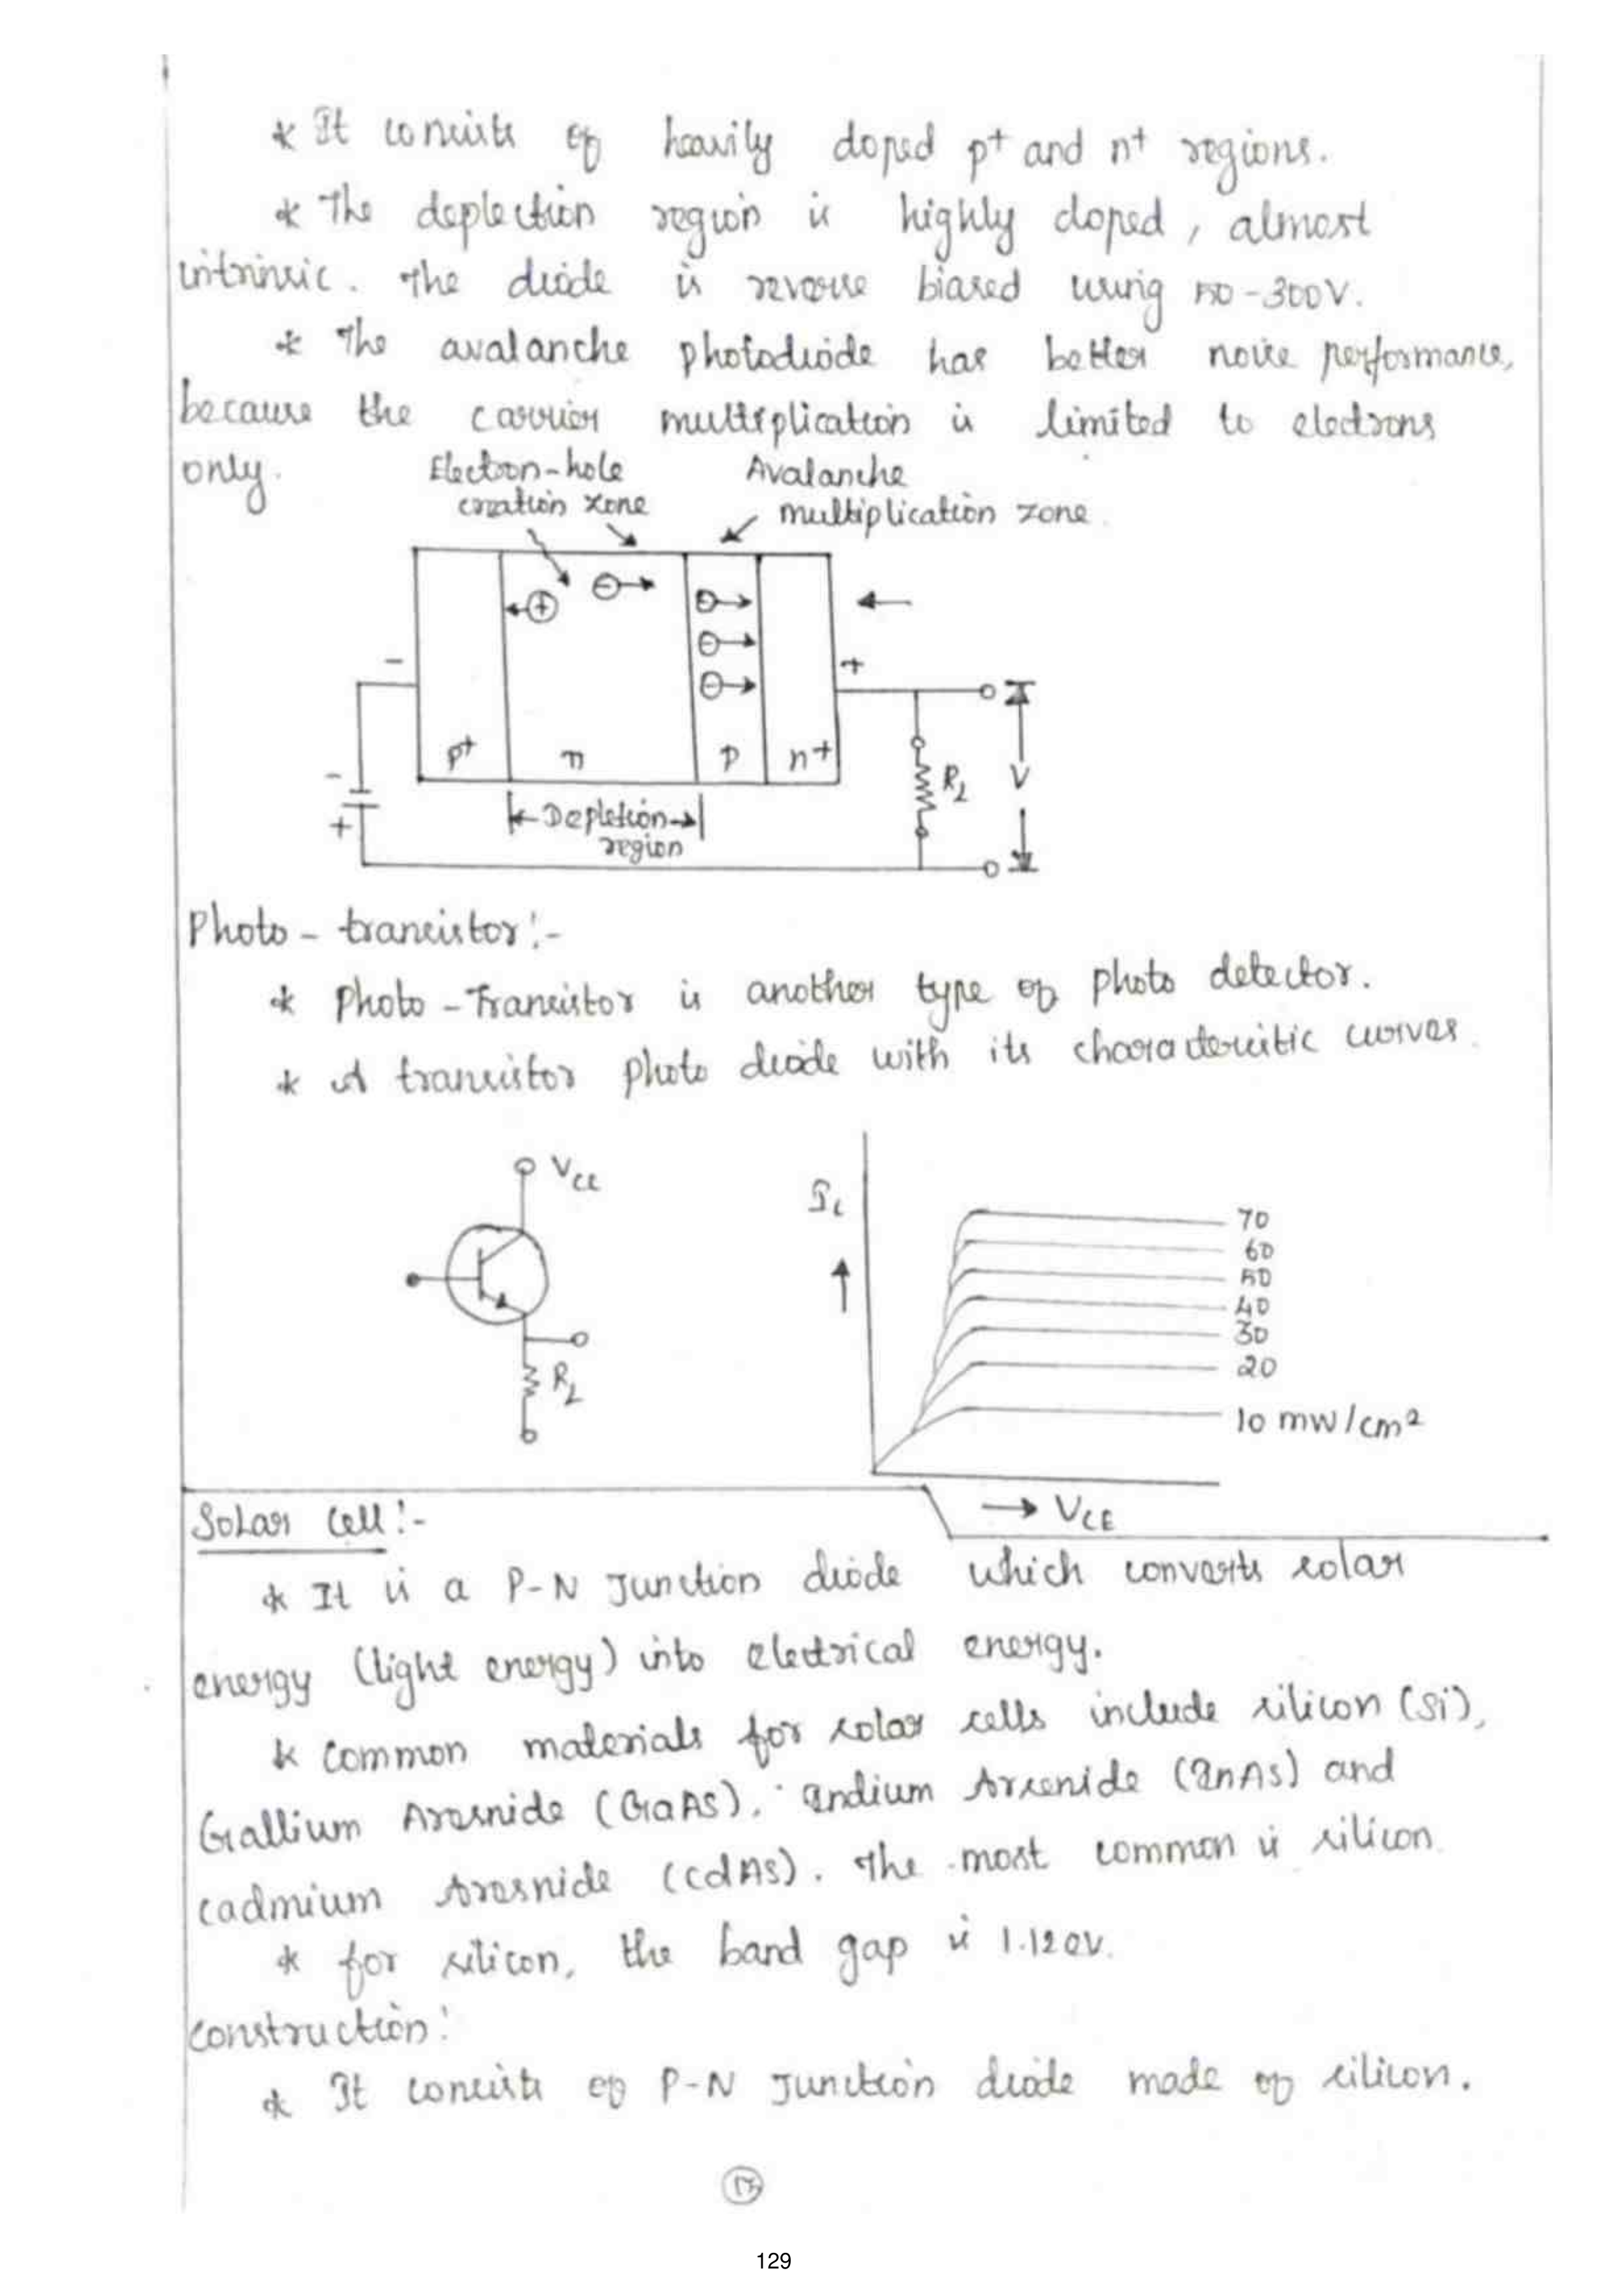 * It consists of heavily doped p+ and n+ regions.
* The deplection region is highly doped, almost
intrinsic. The diode is reverse biased using 50-300V.
* The avalanche photodiode has better noise performance,
because the carrier multiplication is limited to electrons
only.
Electron-hole
creation zone
Avalanche
multiplication zone.
-
+
p+ π p n+
-
+
Depletion
region
RL
V
Photo-transistor:-
* Photo-Transistor is another type of photo detector.
* A transistor photo diode with its characteristic curves.
VCC
RL
IC
70
60
50
40
30
20
10 mW/cm2
→ VCE
Solar Cell:-
* It is a P-N Junction diode which converts solar
energy (light energy) into electrical energy.
* Common materials for solar cells include silicon (Si),
Gallium Aresnide (GaAs), Indium Arsenide (InAs) and
cadmium Aresnide (CdAs). The most common is silicon.
* for silicon, the band gap is 1.12eV.
Construction:
* It consists of P-N Junction diode made of silicon.
129